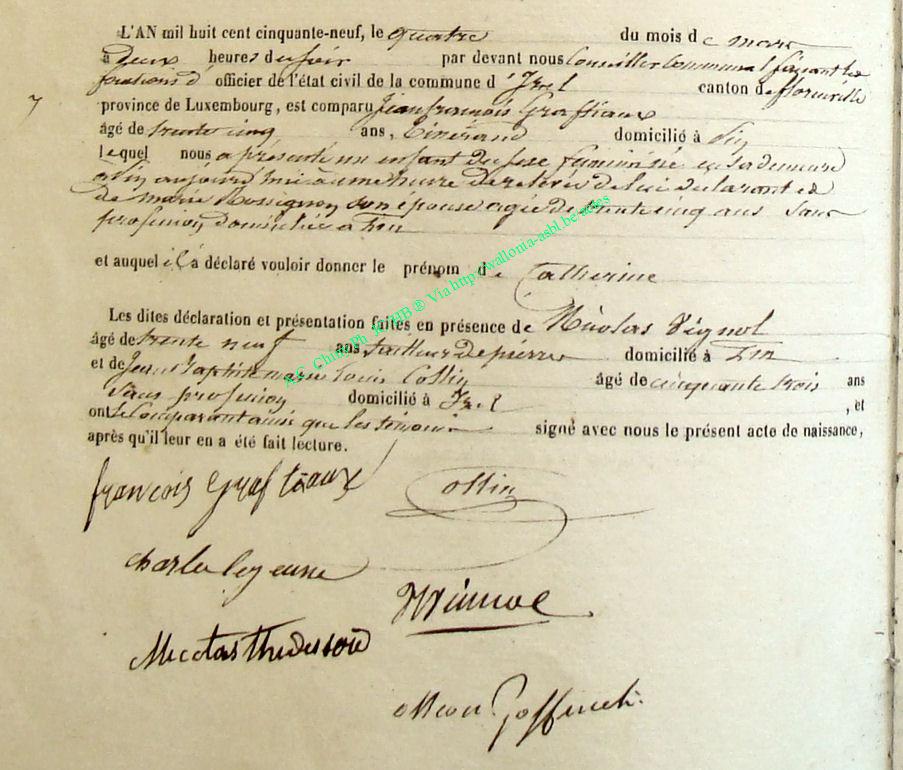 L'AN mil huit cent cinquante-neuf, le quatre du mois de mars
à deux heures du soir par devant nous Conseiller Communal faisant les
fonctions d' officier de l'état civil de la commune d' Izel canton de florenville
7 province de Luxembourg, est comparu Jean françois Graftiaux
âgé de trente cinq ans, domicilié à
lequel nous a présenté un enfant du sexe féminin né en sa demeure
aujourd'hui à une heure de relevée de lui déclarant et
de marie Rossignon son épouse agée de trente cinq ans Sans
profession, domiciliée à
et auquel il a déclaré vouloir donner le prénom de Catherine
Les dites déclaration et présentation faites en présence de Nicolas Pignol
âgé de trente neuf ans, tailleur de pierres domicilié à
et de Jean Baptiste marie louis Collin âgé de cinquante trois ans
Sans profession domicilié à Izel , et
ont le Comparant ainsi que les témoins signé avec nous le présent acte de naissance,
après qu'il leur en a été fait lecture.
françois Graftiaux Collin
charles lejeune
Goffinet
A.C. Chiny Ph. ® Via http://wallonia-asbl.be/actes